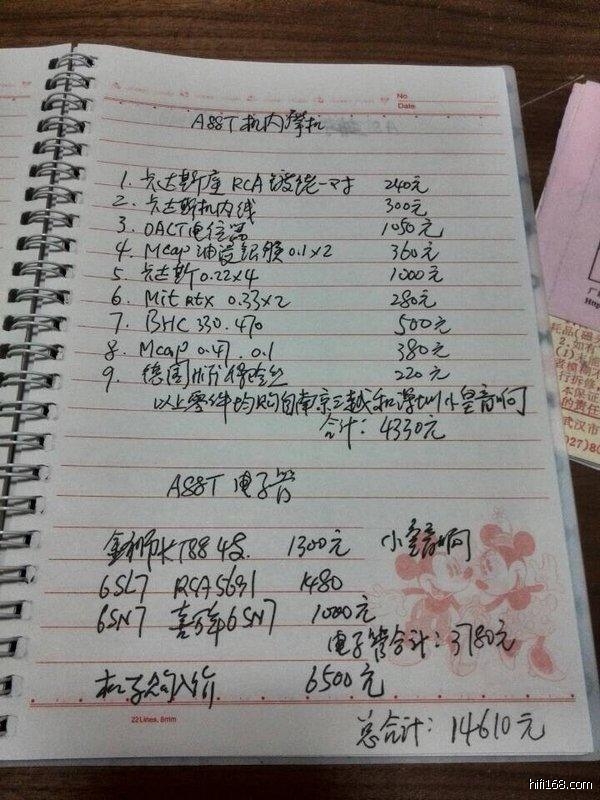 No
Date
A88T机内摩机
1. 卡达斯座RCA镀铑一对 240元
2. 卡达斯机内线 300元
3. DACT电位器 1050元
4. Mcap油浸银 0.1×2 360元
5. 卡达斯0.22×4 1000元
6. Mit RTX 0.33×2 280元
7. BHC 330.470 500元
8. Mcap 0.47 0.1 380元
9. 德国Hifi保险丝 220元
以上零件均购自南京三越和深圳小皇音响
合计: 4330元
A88T 电子管
金狮KT88 4支 1300元 小皇音响
6SL7 RCA5691 1480
6SN7 喜万年6SN7 1000元
电子管合计: 3780元
机子购入价 6500元
22Lines, 8mm
总合计: 14610元
耗品(磁
2.如有
(1)未
者模糊不
行拆修
本保证
的责任
武汉市
027)80
hifi168.com